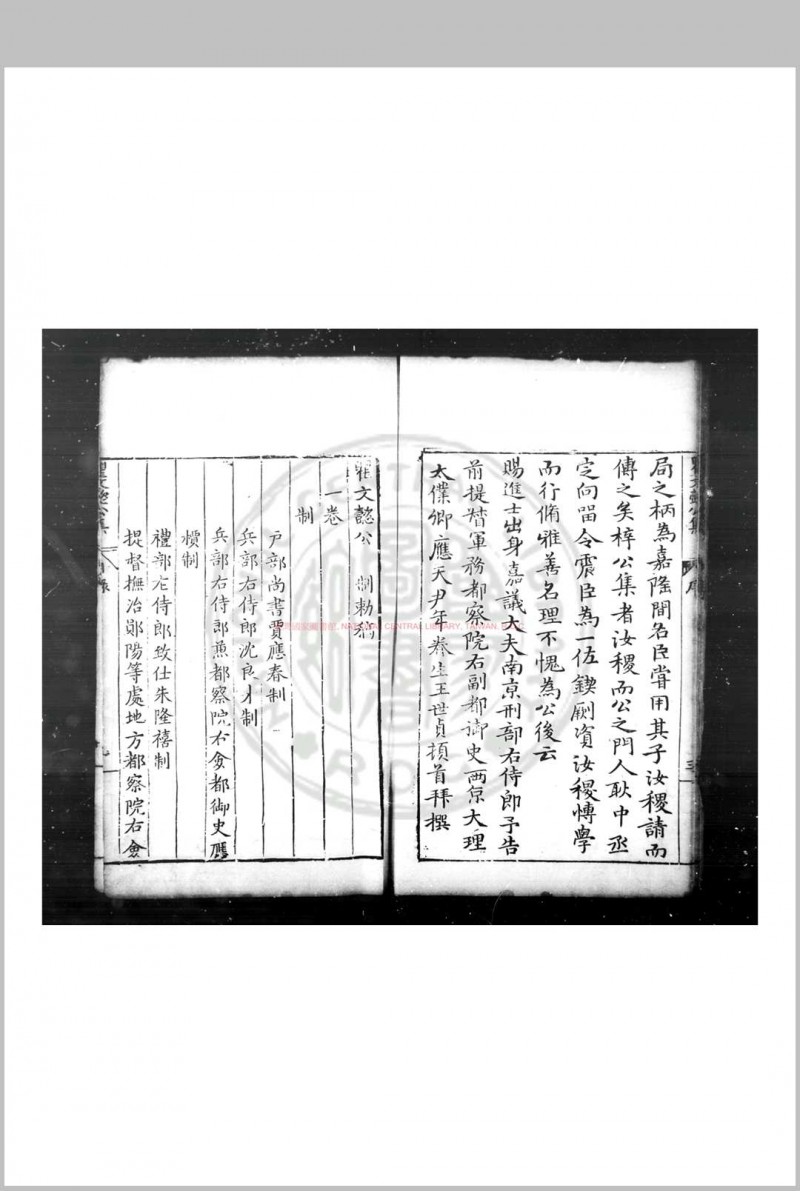 局之柄為嘉隆間名臣嘗用其子汝稷請而
傳之矣梓公集者汝稷而公之門人耿中丞
定向留令震臣為一佐鍥劂資汝稷愽學
而行脩雅善名理不愧為公後云
賜進士出身嘉議大夫南京刑部右侍郎予告
前提督軍務都察院右副都御史兩京大理
太僕卿應天尹年眷生王世貞頓首拜撰
瞿文懿公制勅稿
一卷
制
戶部尚書賈應春制
兵部右侍郎沈良才制
兵部右侍郎兼都察院右僉都御史應
檟制
禮部左侍郎致仕朱隆禧制
提督撫治鄖陽等處地方都察院右僉
瞿文懿公集
目錄
NATIONAL CENTRAL LIBRARY, TAIWAN